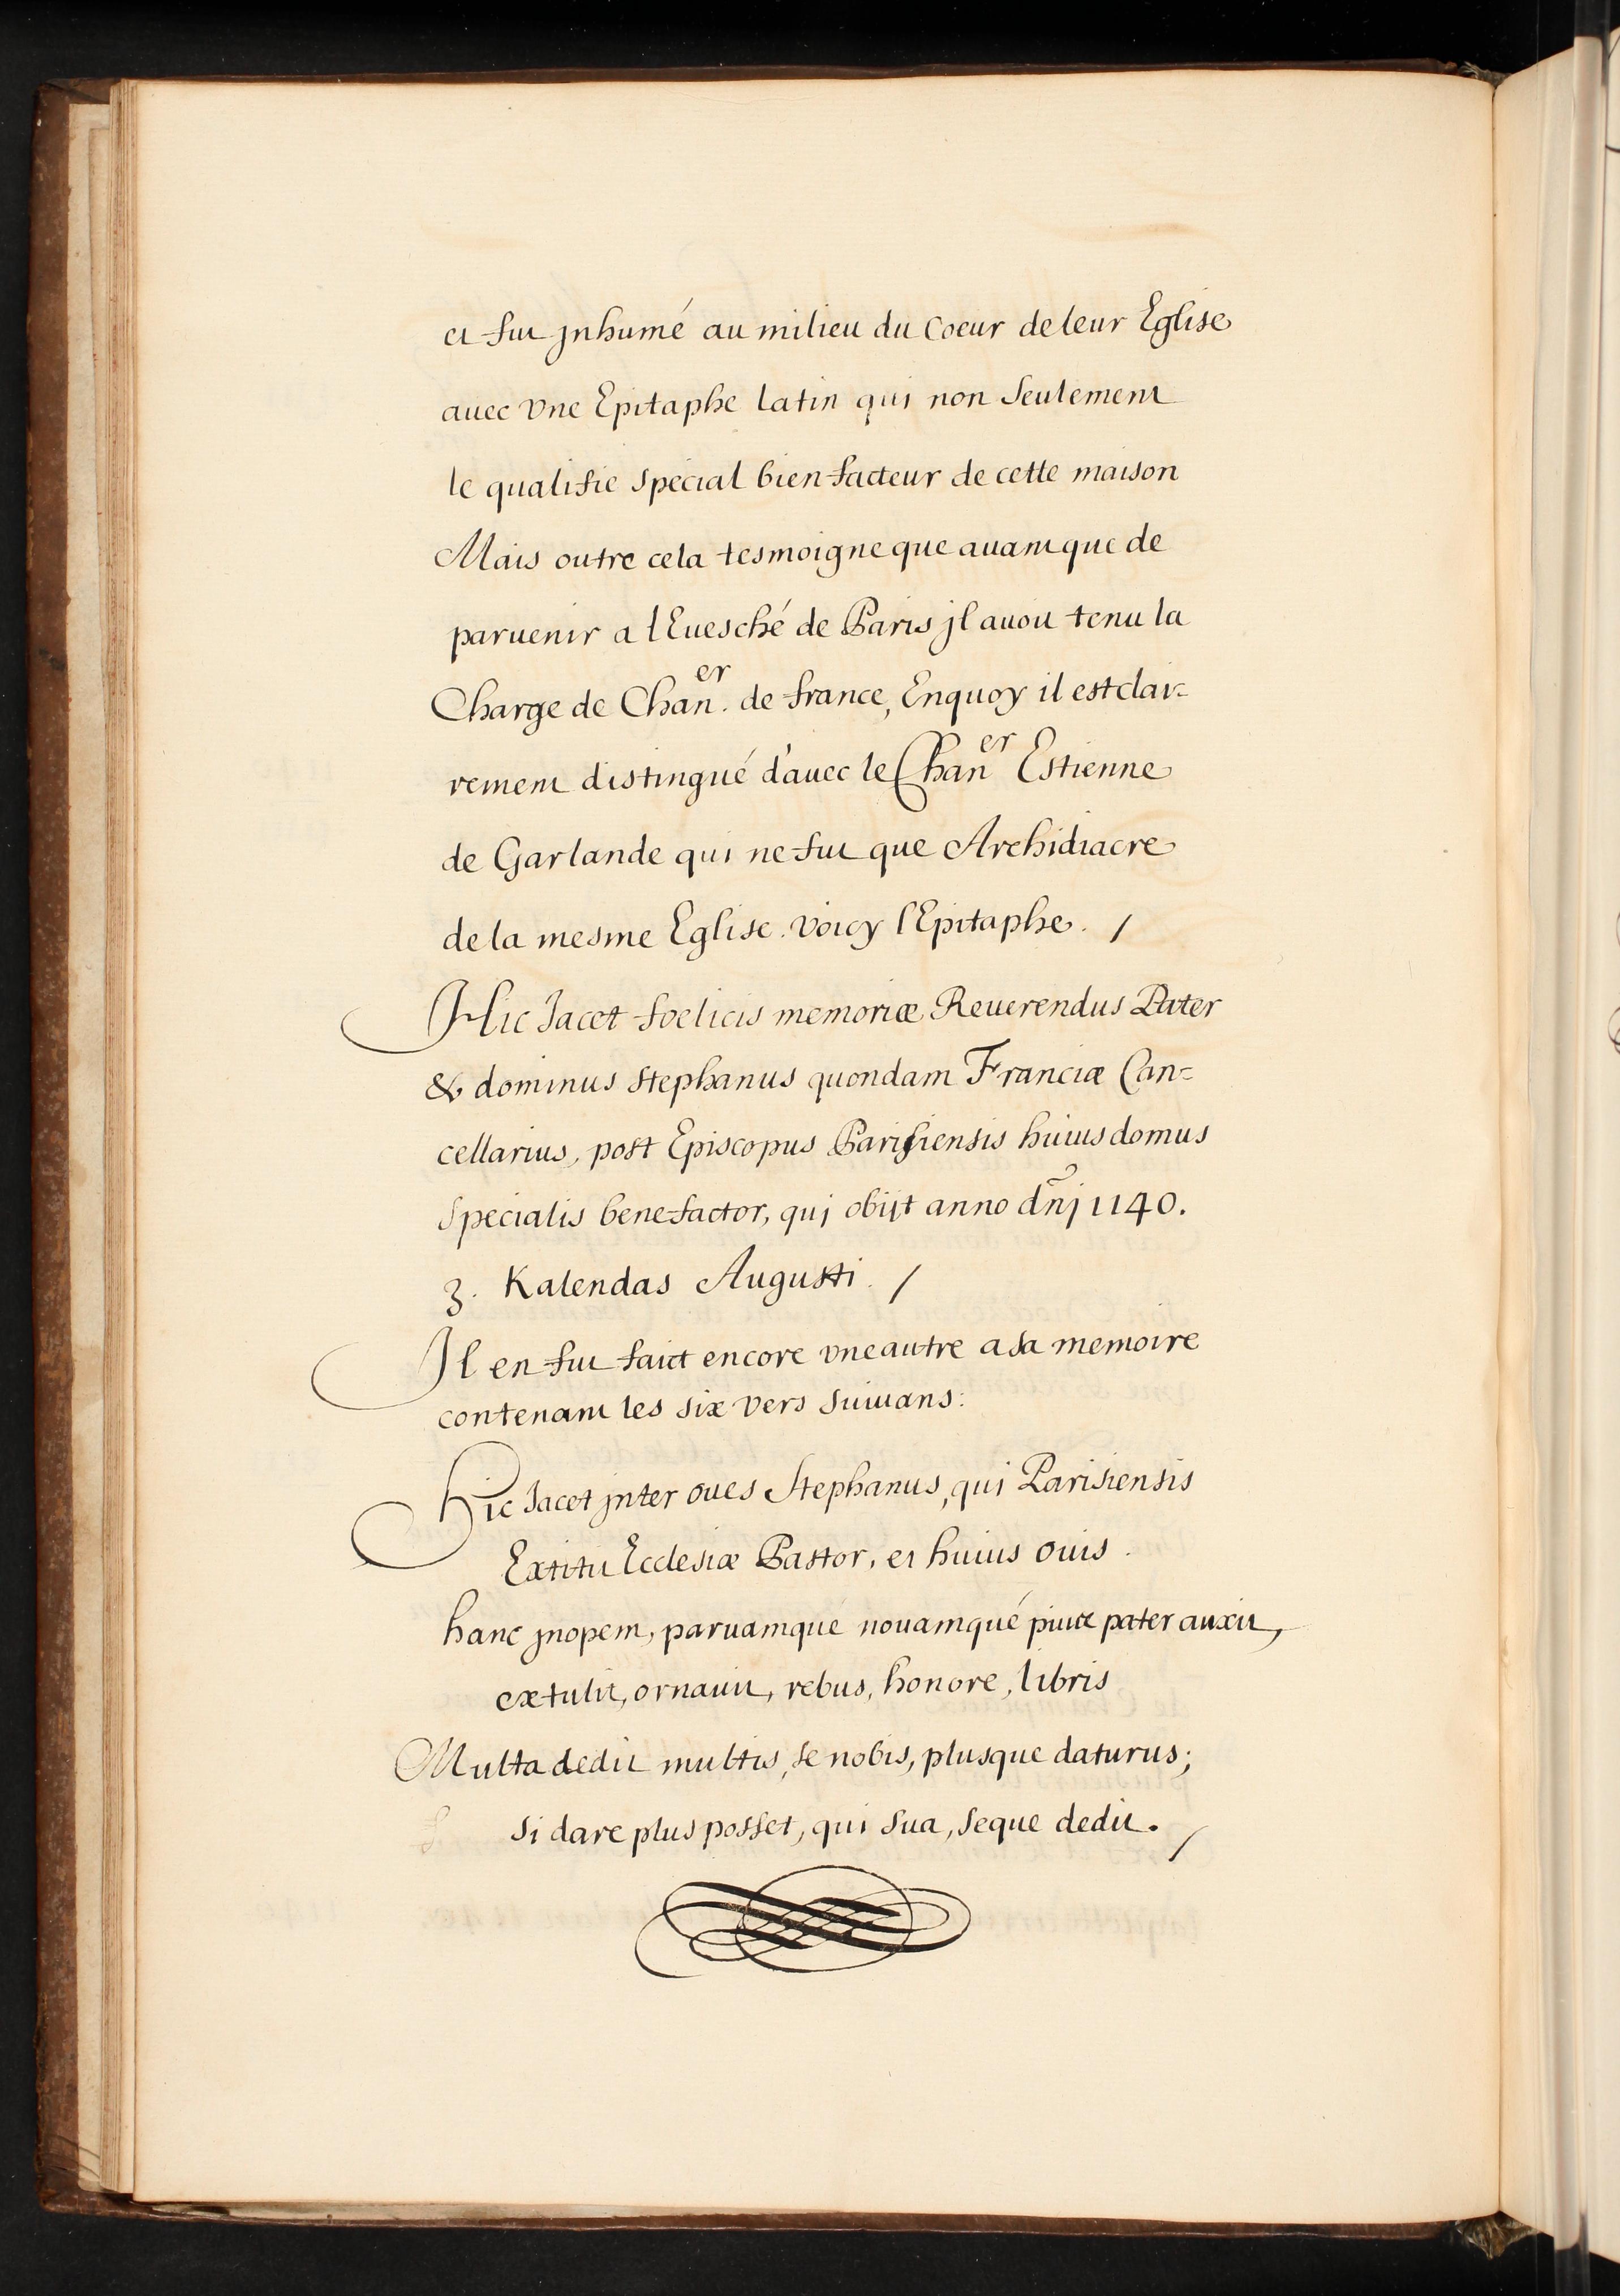 et fut jnhumé au milieu du Coeur de leur Eglise
auec vne Epitaphe latin qui non seulement
le qualifie special bienfacteur de cette maison
Mais outre cela tesmoigne que auant que de
paruenir a lEuesché de Paris jl auoit tenu la
Charge de Chan.er de france, Enquoy il est clai=
rement distingué d'auec le Chaner Estienne
de Garlande qui ne fut que Archidiacre
de la mesme Eglise. voicy l'Epitaphe. /
Hic Jacet foelicis memoriæ Reuerendus Pater
& dominus stephanus quondam Franciæ Can=
cellarius, post Episcopus Parisiensis huius domus
specialis benefactor, quj obijt anno dn̄j 1140.
3. Kalendas Augusti. /
Jl en fut faict encore vne autre a sa memoire
contenant les six vers suiuans:
Hic Jacet jnter oues Stephanus, qui Parisiensis
Extitit Ecclesiæ Pastor, et huius ouis.
hanc jnopem, paruamqué nouamqué pater auxit,
extulit, ornauit, rebus, honore, libris
Multa dedit multis, se nobis, plusque daturus;
si dare plus posset, qui sua, seque dedit. /